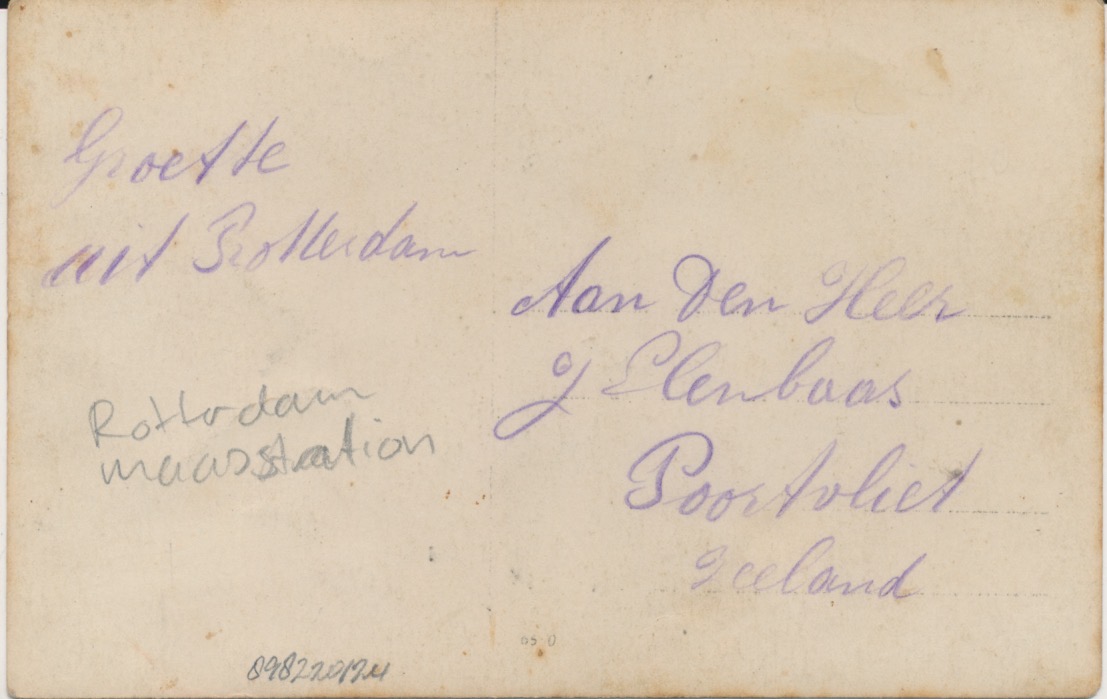 Groette
uit Rotterdam
Aan Den Heer
J Elenbaas
Poortvliet
Zeeland
Rotterdam
maasstation